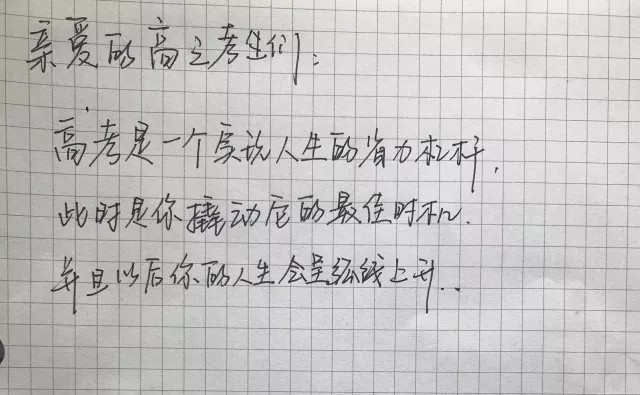 亲爱的高三考生们:
高考是一个实现人生的省力杠杆,
此时是你撬动它的最佳时机.
并且以后你的人生会呈弧线上升..